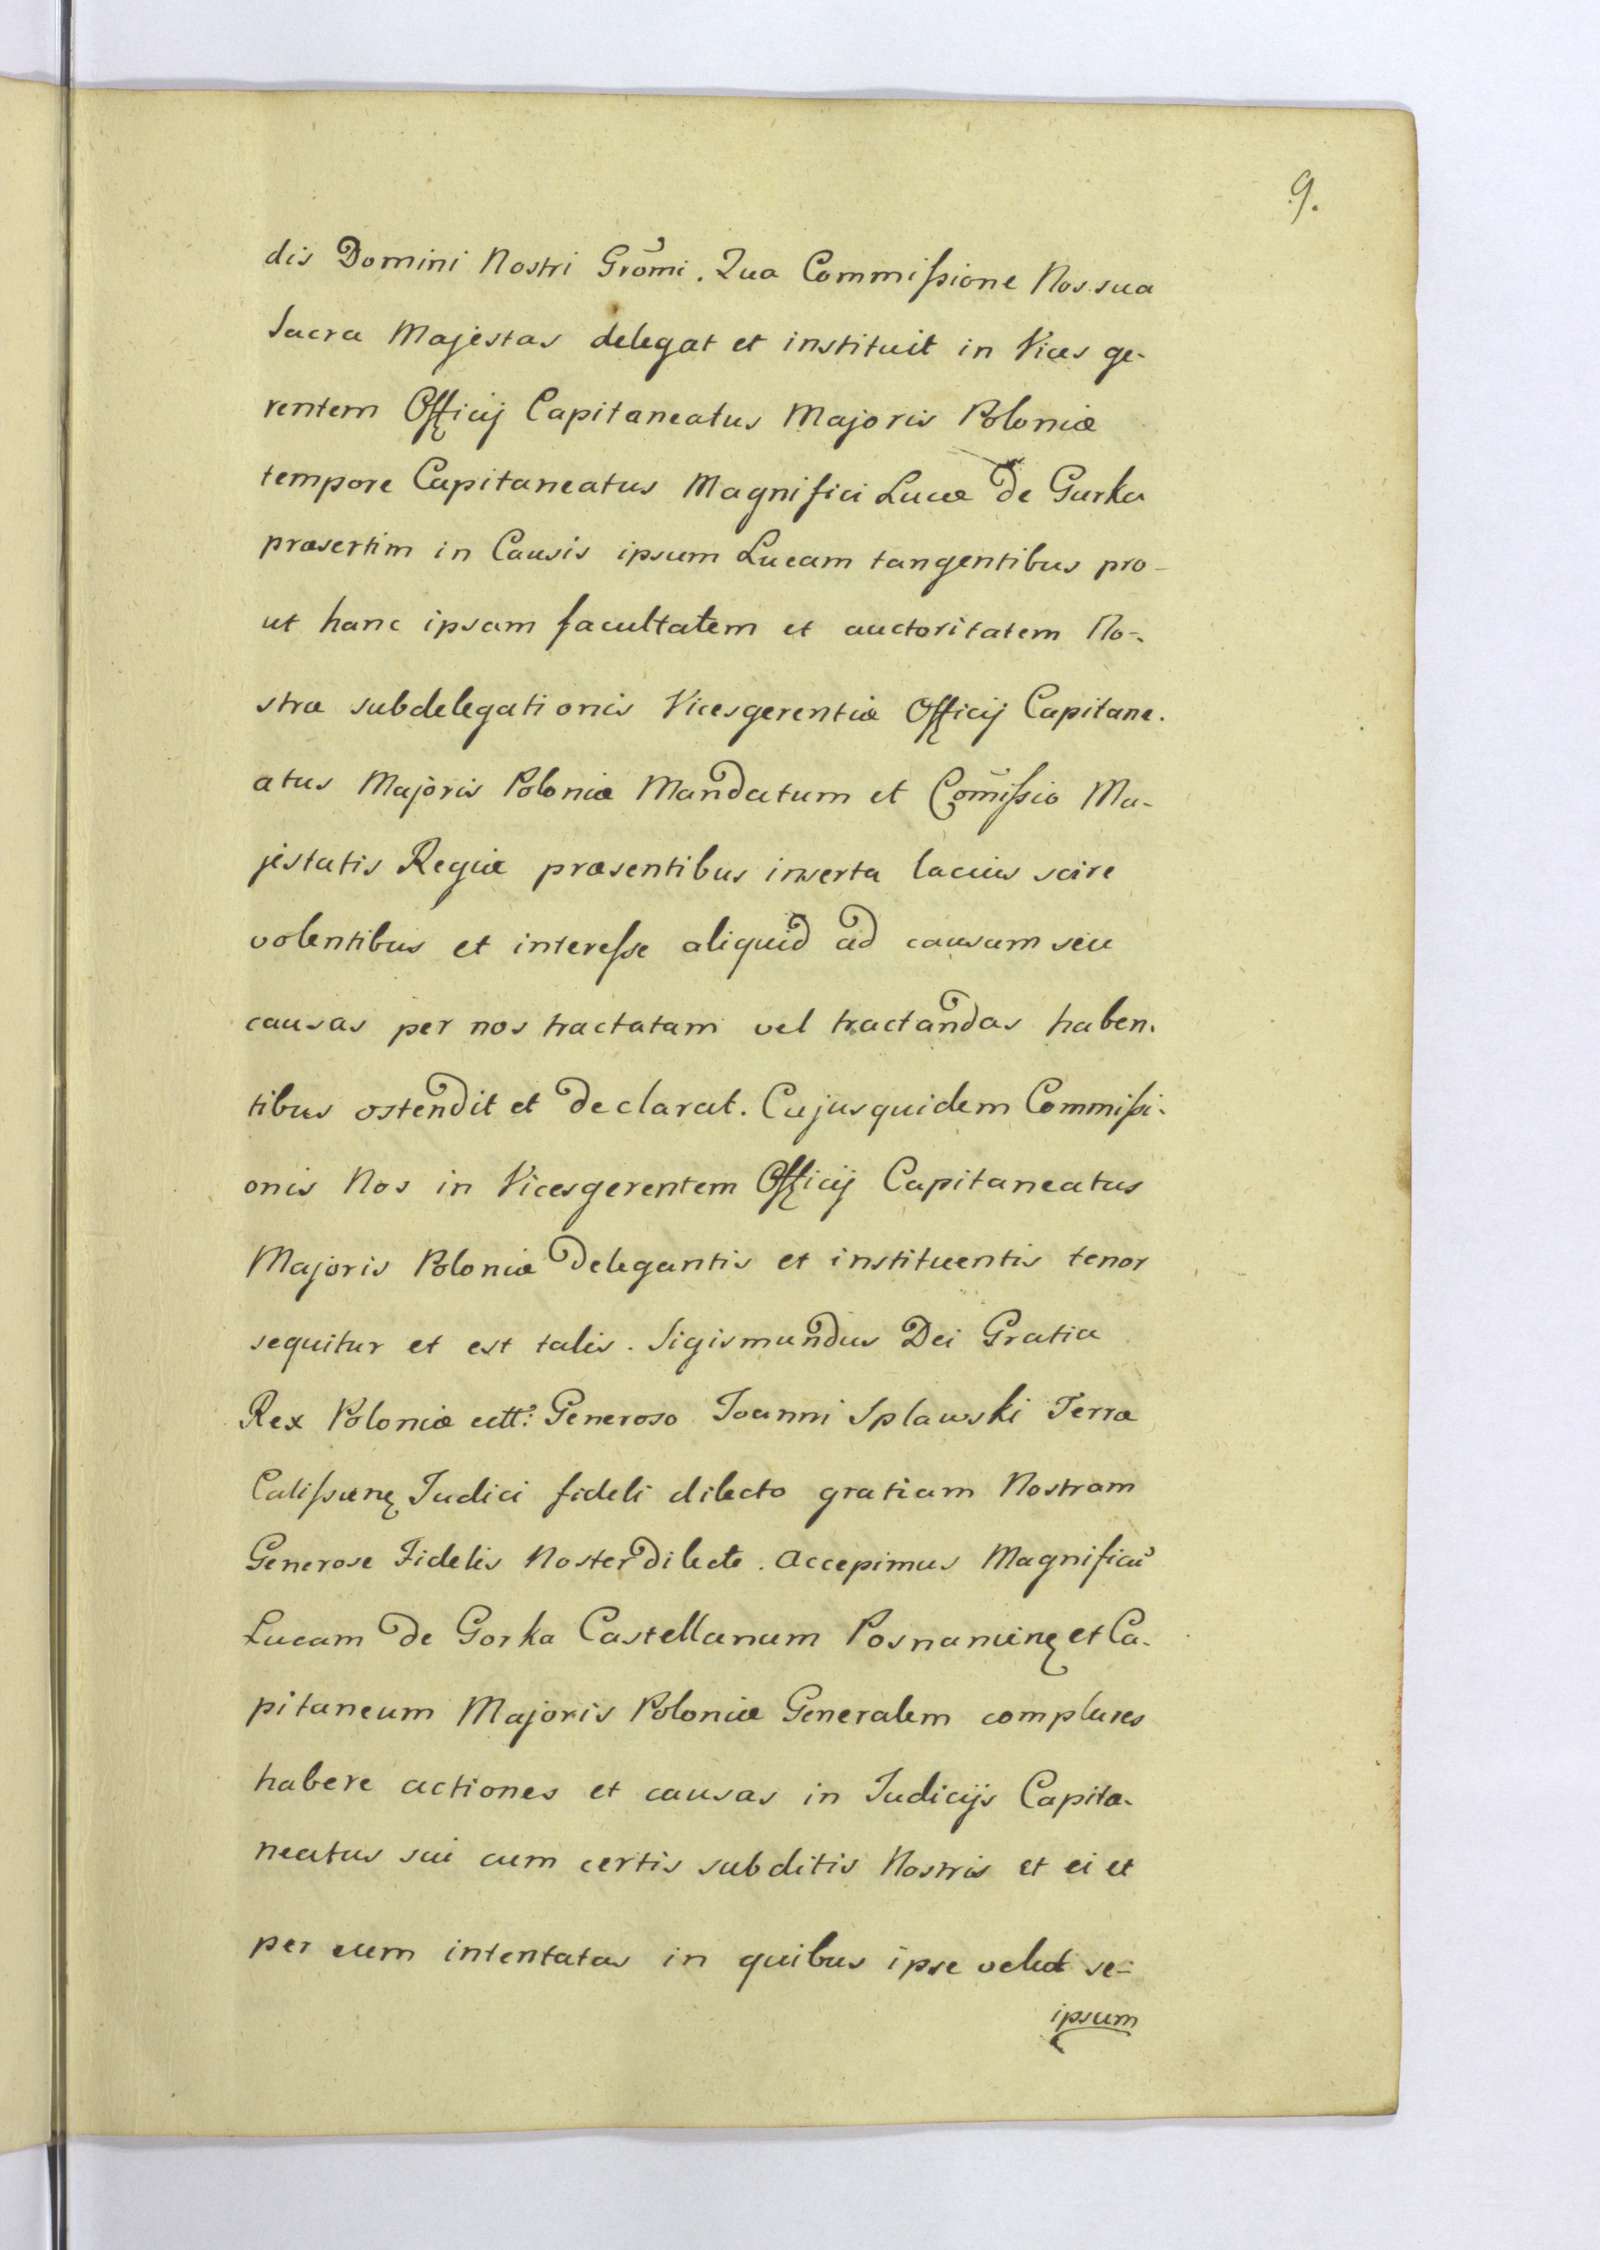 9.
dis Domini Nostri Grõmi. Qua Commiſsione Nos sua
Sacra Majestas delegat et instituit in Vices ge-
rentem Officij Capitaneatus Majoris Poloniæ
tempore Capitaneatus Magnifici Lucæ De Gurka
præsertim in Causis ipsum Lucam tangentibus pro-
ut hanc ipsam facultatem et auctoritatem No-
stræ subdelegationis Vicesgerentiæ Officij Capitane-
atus Majoris Poloniæ Mandatum et Com̃iſsio Ma-
jestatis Regiæ præsentibus inserta lacius scire
volentibus et intereſse aliquid ad causam seu
causas per nos tractatam vel tractandas haben-
tibus ostendit et declarat. Cujusquidem Commiſsi-
onis Nos in Vicesgerentem Officij Capitaneatus
Majoris Poloniæ Delegantis et instituentis tenor
sequitur et est talis. Sigismundus Dei Gratia
Rex Poloniæ ett: Generoso Joanni Splawski Terræ
Caliſsienę Judici fideli dilecto gratiam Nostram
Generose Fidelis Noster dilecte. Accepimus Magnificũ
Lucam de Gorka Castellanum Posnanienę et Ca-
pitaneum Majoris Poloniæ Generalem complures
habere actiones et causas in Judicijs Capita-
neatus sui cum certis subditis Nostris et ei et
per eum intentatas in quibus ipse velut se-
ipsum